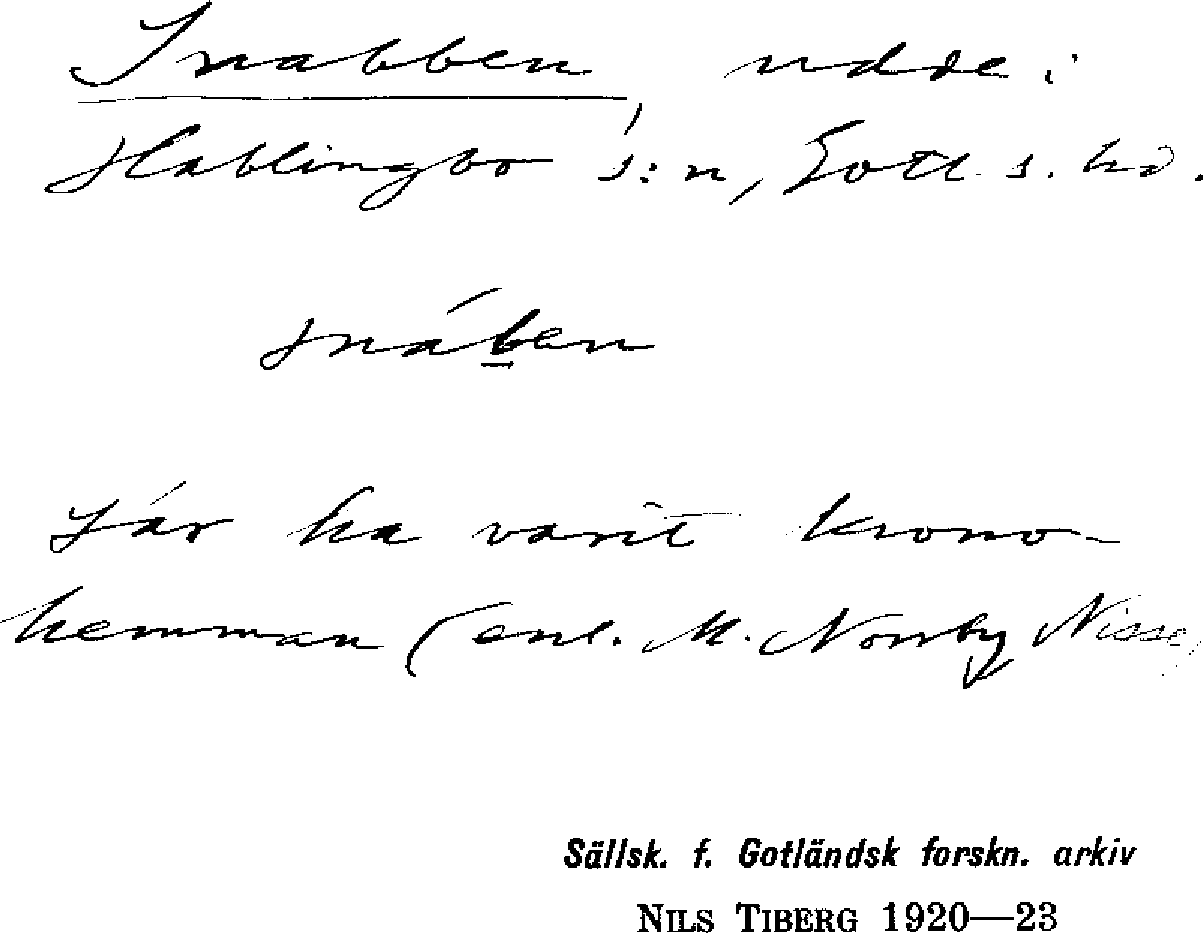 Snabben, udde i
Hablingbo s:n, Gotl. s. hd.
snáben
Lär ha varit krono-
hemman (enl. M. Norrby Nisse,
Sällsk. f. Gotländsk forskn. arkiv
NILS TIBERG 1920—23